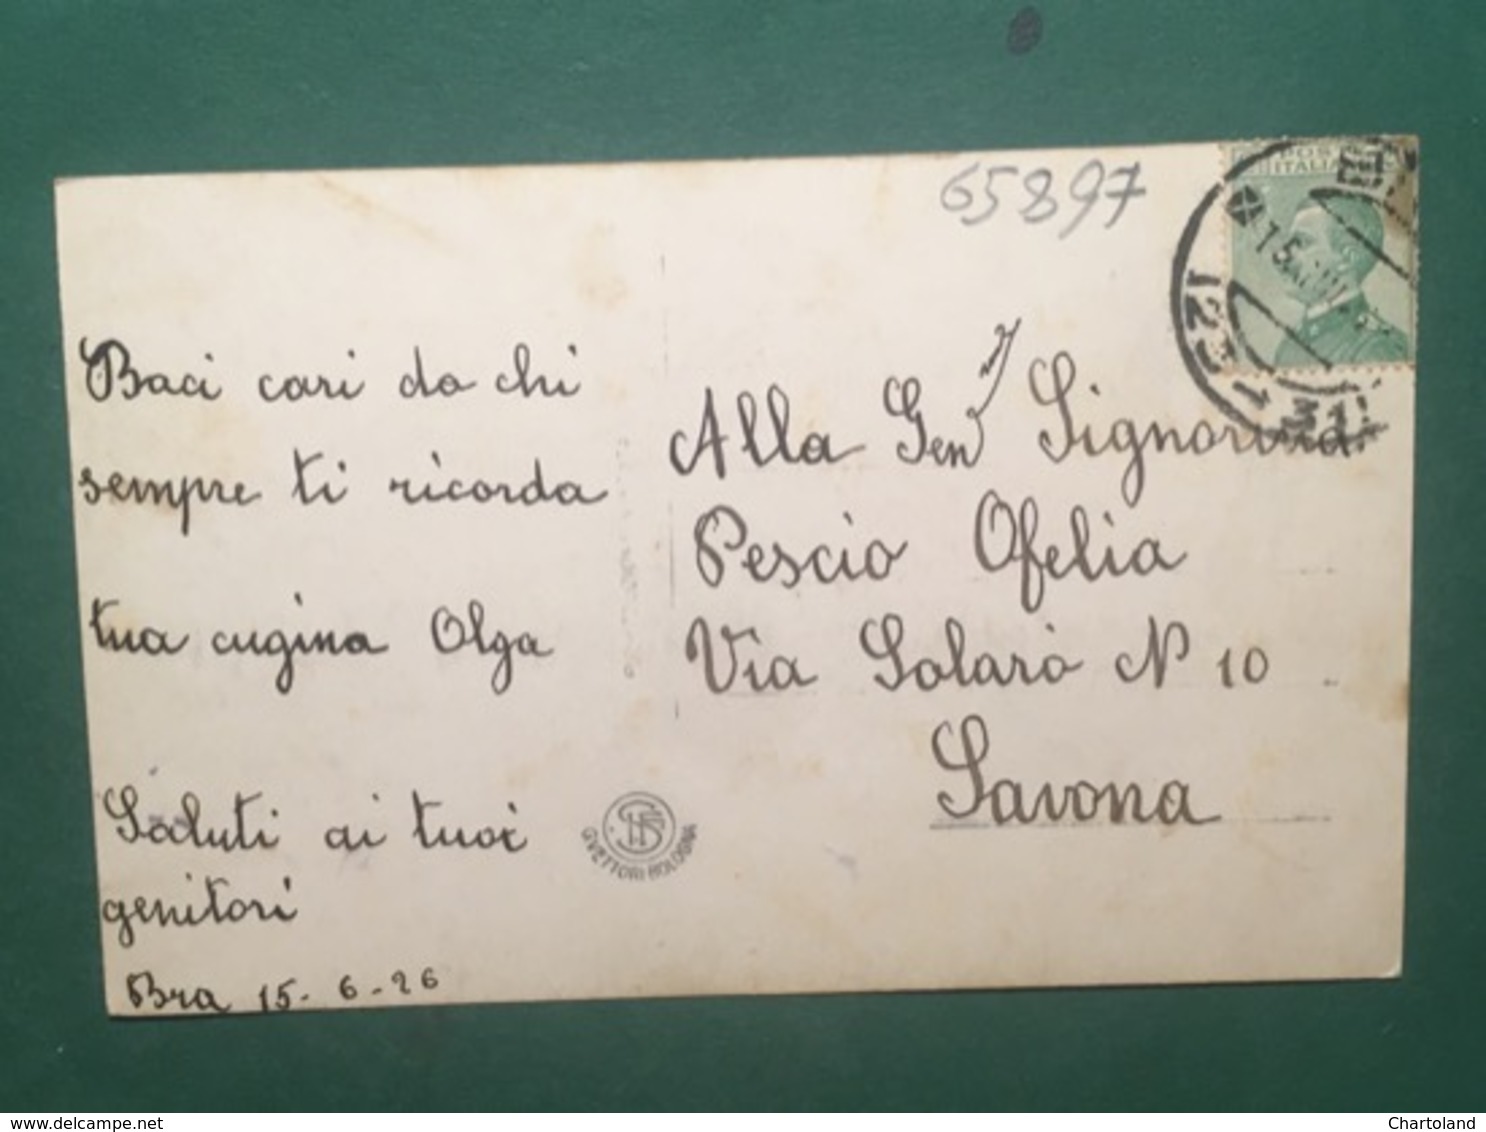 65897
POSTE
ITALIANE
Baci cari da chi
sempre ti ricorda
tua cugina Olga
Saluti ai tuoi
genitori
Bra 15-6-26
Alla Gen Signorina
Pescio Ofelia
Via Solarò N 10
Savona
G. VETTORI BOLOGNA
delcampe.net
Chartoland